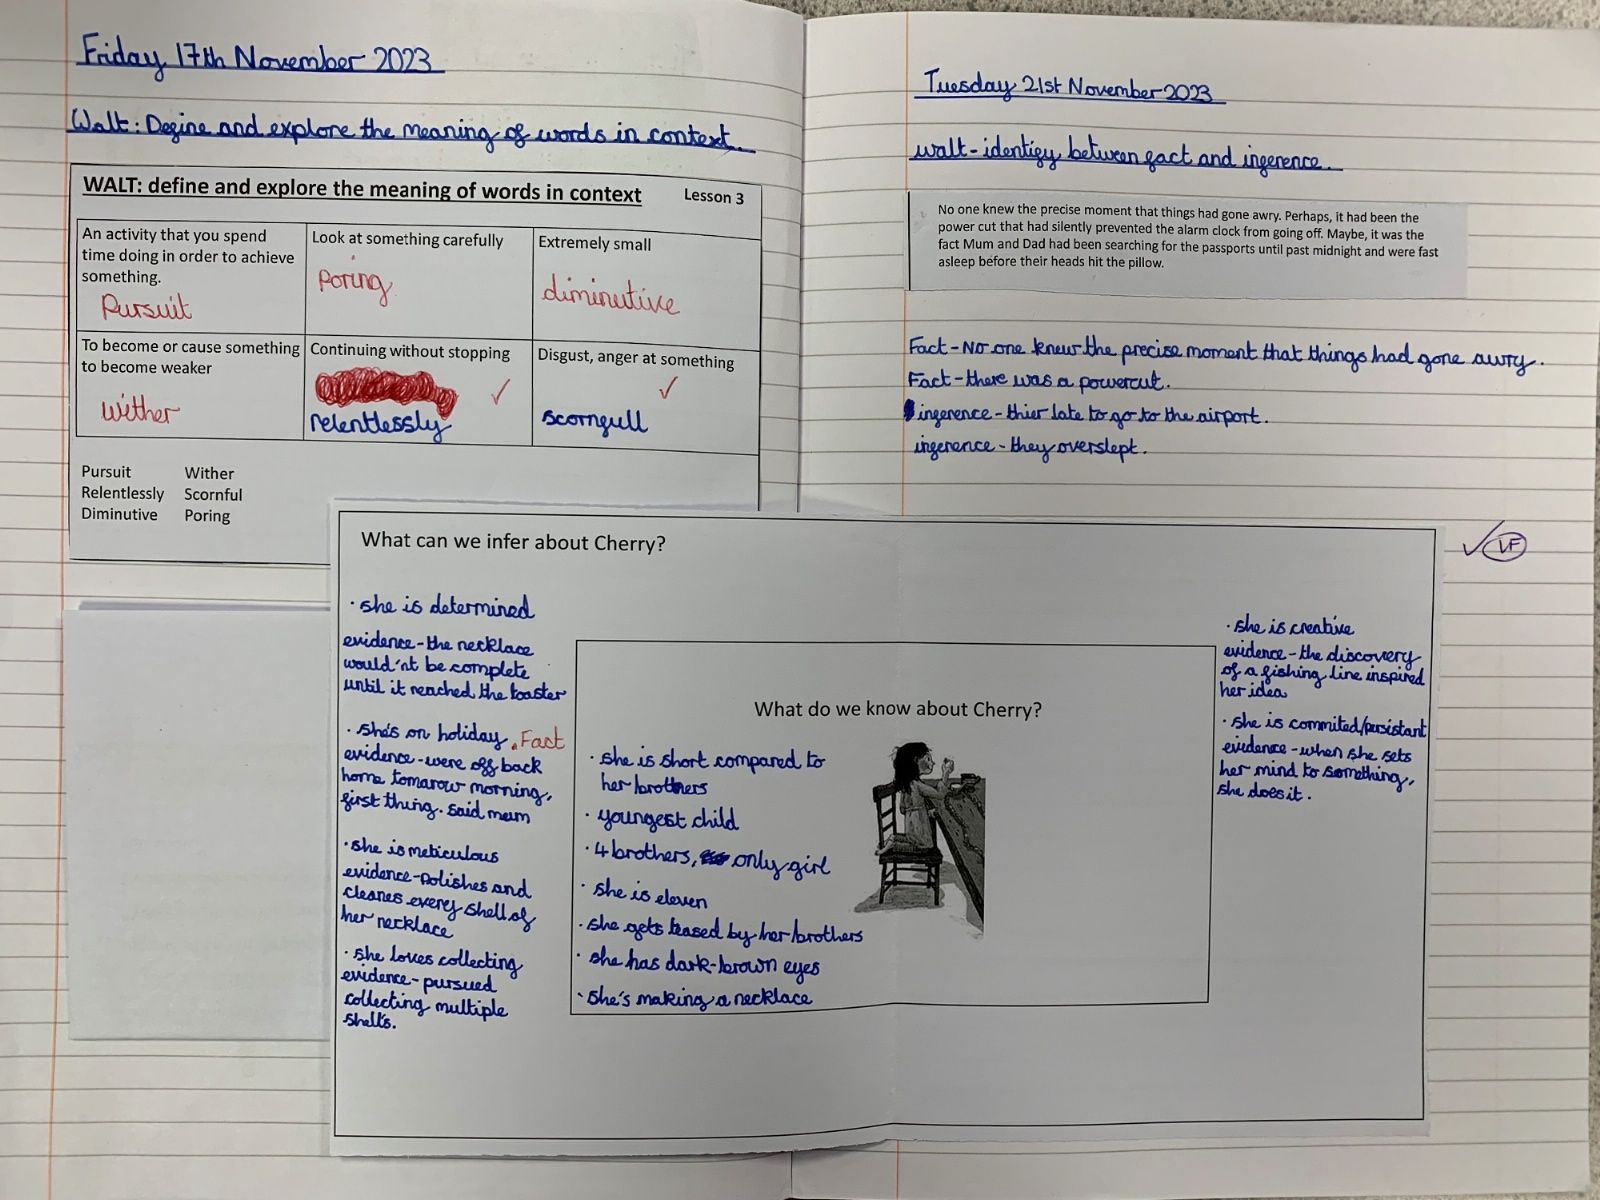 Friday 17th November 2023
Walt: Define and explore the meaning of words in context.
WALT: define and explore the meaning of words in context
Lesson 3
An activity that you spend
time doing in order to achieve
something.
Pursuit
Look at something carefully
Poring
Extremely small
diminutive
To become or cause something
to become weaker
Wither
Continuing without stopping
relentlessly
Disgust, anger at something
scornfull
Pursuit Wither
Relentlessly Scornful
Diminutive Poring
Tuesday 21st November 2023
walt - identify between fact and inference.
No one knew the precise moment that things had gone awry. Perhaps, it had been the
power cut that had silently prevented the alarm clock from going off. Maybe, it was the
fact Mum and Dad had been searching for the passports until past midnight and were fast
asleep before their heads hit the pillow.
Fact - No one knew the precise moment that things had gone awry.
Fact - there was a powercut.
inference - thier late to go to the airport.
inferance - they overslept.
VF
What can we infer about Cherry?
• she is determined
evidence - the necklace
would'nt be complete
until it reached the toaster
• she's on holiday. Fact
evidence - were off back
home tomarow morning,
first thing. said mum
• she is meticulous
evidence - polishes and
cleanes every shell of
her necklace
• she loves collecting
evidence - pursued
collecting multiple
shells.
What do we know about Cherry?
• she is short compared to
her brothers
• youngest child
• 4 brothers, only girl
• she is eleven
• she gets teased by her brothers
• she has dark-brown eyes
• she's making a necklace
• she is creative
evidence - the discovery
of a fishing line inspired
her idea
• she is commited/persistant
evidence - when she sets
her mind to something,
she does it.